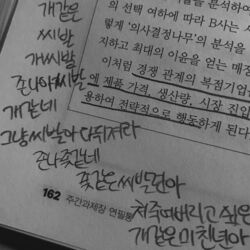 개같은
씨발
개씨발
존나아씨발
개같네
그냥씨발아 다 뒤져라
존나좆같네
좆같은씨발련아
쳐죽여버리고싶은
개같은미친년아
의 선택 여하에 따라 B사는 시
렇게 '의사결정나무'의 분석을
지하고 최대의 이윤을 얻는 매
이처럼 경쟁 관계의 복점기업
에 제품 가격, 생산량, 시장 진입
용하여 전략적으로 행동하게 된다
162 주간과제장 연필통